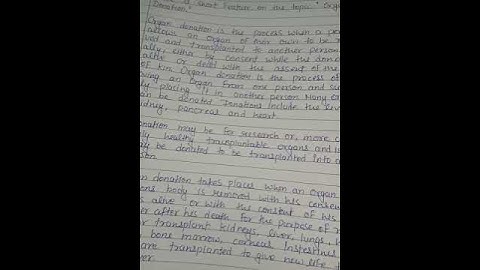 a short feature on the topic "Organ
Donation"
Organ donation is the process when a pe
allows an Organ of their own to be r
and transplanted to another person
ally, either by consent while the dono
alive or dead with the assent of the n
of kin. Organ donation is the process of
an Organ from one person and su
ly placing it in another person. Many or
an be donated. Donations include the live
kidney, pancreas and heart.
onation may be for research or, more c
ly healthy transplantable organs and
y be donated to be transplanted into a
son.
n donation takes place when an Organ
ons body is removed with his consen
s alive or with the constent of his
er after his death for the purpose of r
or transplant kidneys, liver, lungs,
bone marrow, corneas Intestines
are transplanted to give new life
er.